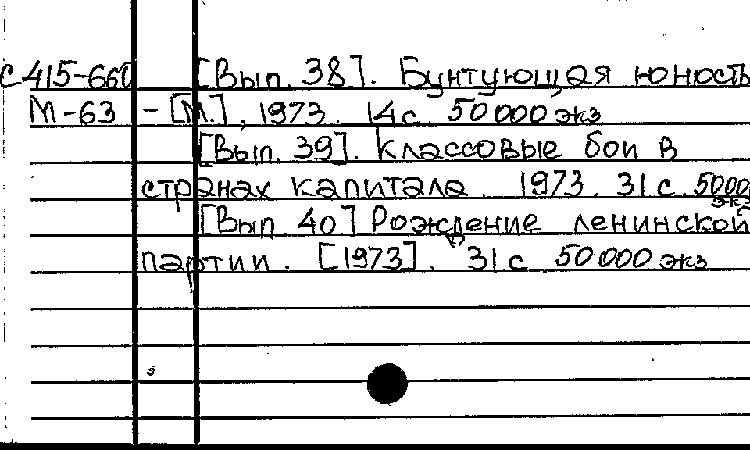 С415-660 [Вып. 38]. Бунтующая юность
М-63 - [М.], 1973. 14с. 50000 экз
[Вып. 39]. Классовые бои в
странах капитала. 1973. 31 с. 5000 экз
[Вып. 40] Рождение ленинской
партии. [1973]. 31 с 50000 экз